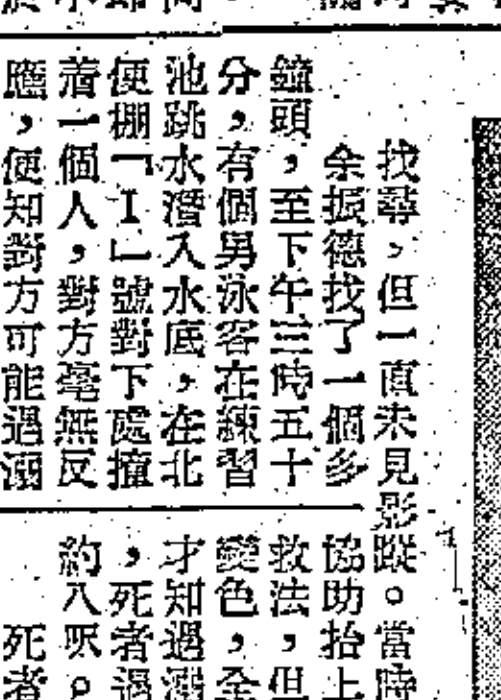 找尋，但一直未見影蹤。當時
余振德找了一個多
鐘頭，至下午三時五十
分，有個男泳客在練習
池跳水潛入水底，在北
便棚「I」號對下處撞
着一個人，對方毫無反
應，便知對方可能遇溺
協助抬上
救法，但
變色，全
才知遇溺
，死者遇
約八呎。
死者